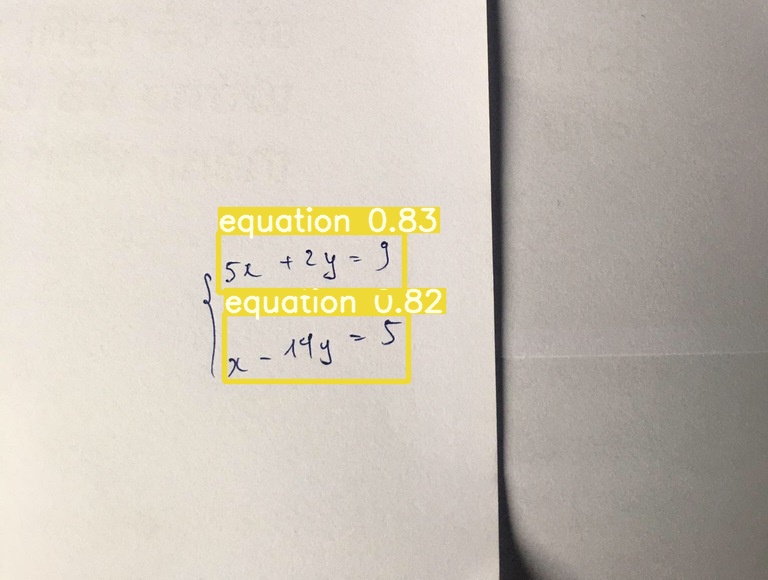 equation 0.83
5x + 2y = 9
equation 0.82
x - 14y = 5